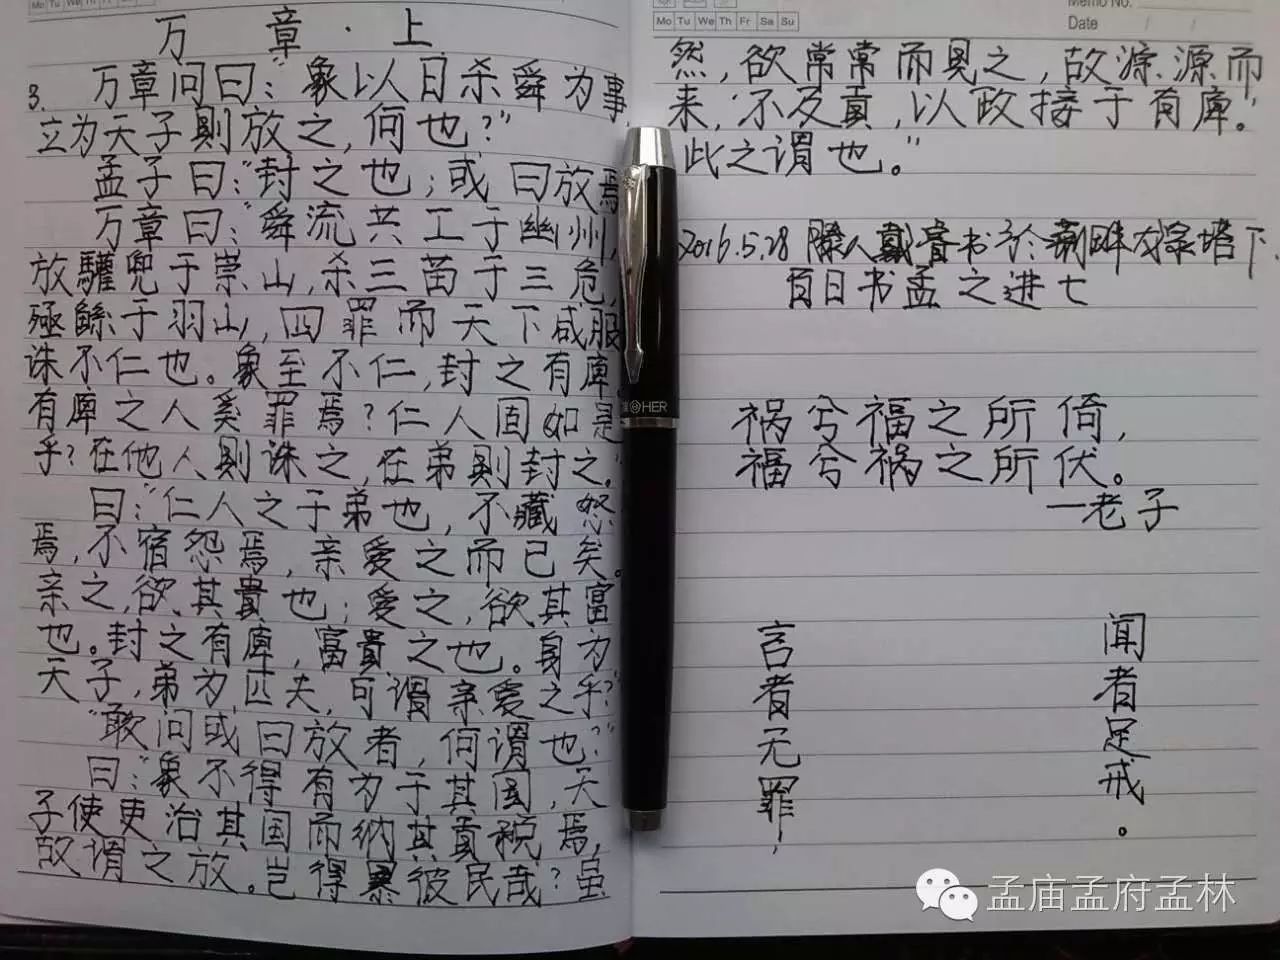 Mo Tu We Th Fr Sa Su
万章·上
3. 万章问曰："象以日杀舜为事
立为天子则放之，何也？"
孟子曰："封之也；或曰放焉
万章曰："舜流共工于幽州，
放驩兜于崇山，杀三苗于三危，
殛鲧于羽山，四罪而天下咸服
诛不仁也。象至不仁，封之有庳。
有庳之人奚罪焉？仁人固如是
乎？在他人则诛之，在弟则封之。"
曰："仁人之于弟也，不藏怒
焉，不宿怨焉，亲爱之而已矣。
亲之，欲其貴也；爱之，欲其富
也。封之有庳，富貴之也。身为
天子，弟为匹夫，可谓亲爱之乎？"
"敢问或曰放者，何谓也？"
曰："象不得有为于其国，天
子使吏治其国而纳其貢税焉，
故谓之放。岂得暴彼民哉？虽
Mo Tu We Th Fr Sa Su
Memo No.
Date / /
然，欲常常而见之，故源源而
来，'不及貢，以政接于有庳。'
此之谓也。"
2016.5.28 滕人戴 书于 塔下.
百日书孟之进七
祸兮福之所倚，
福兮祸之所伏。
—老子
言者无罪，
闻者足戒。
HER
孟庙孟府孟林